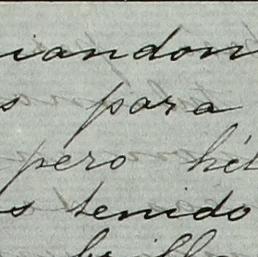 iandon
s para
pero hé
s tenido